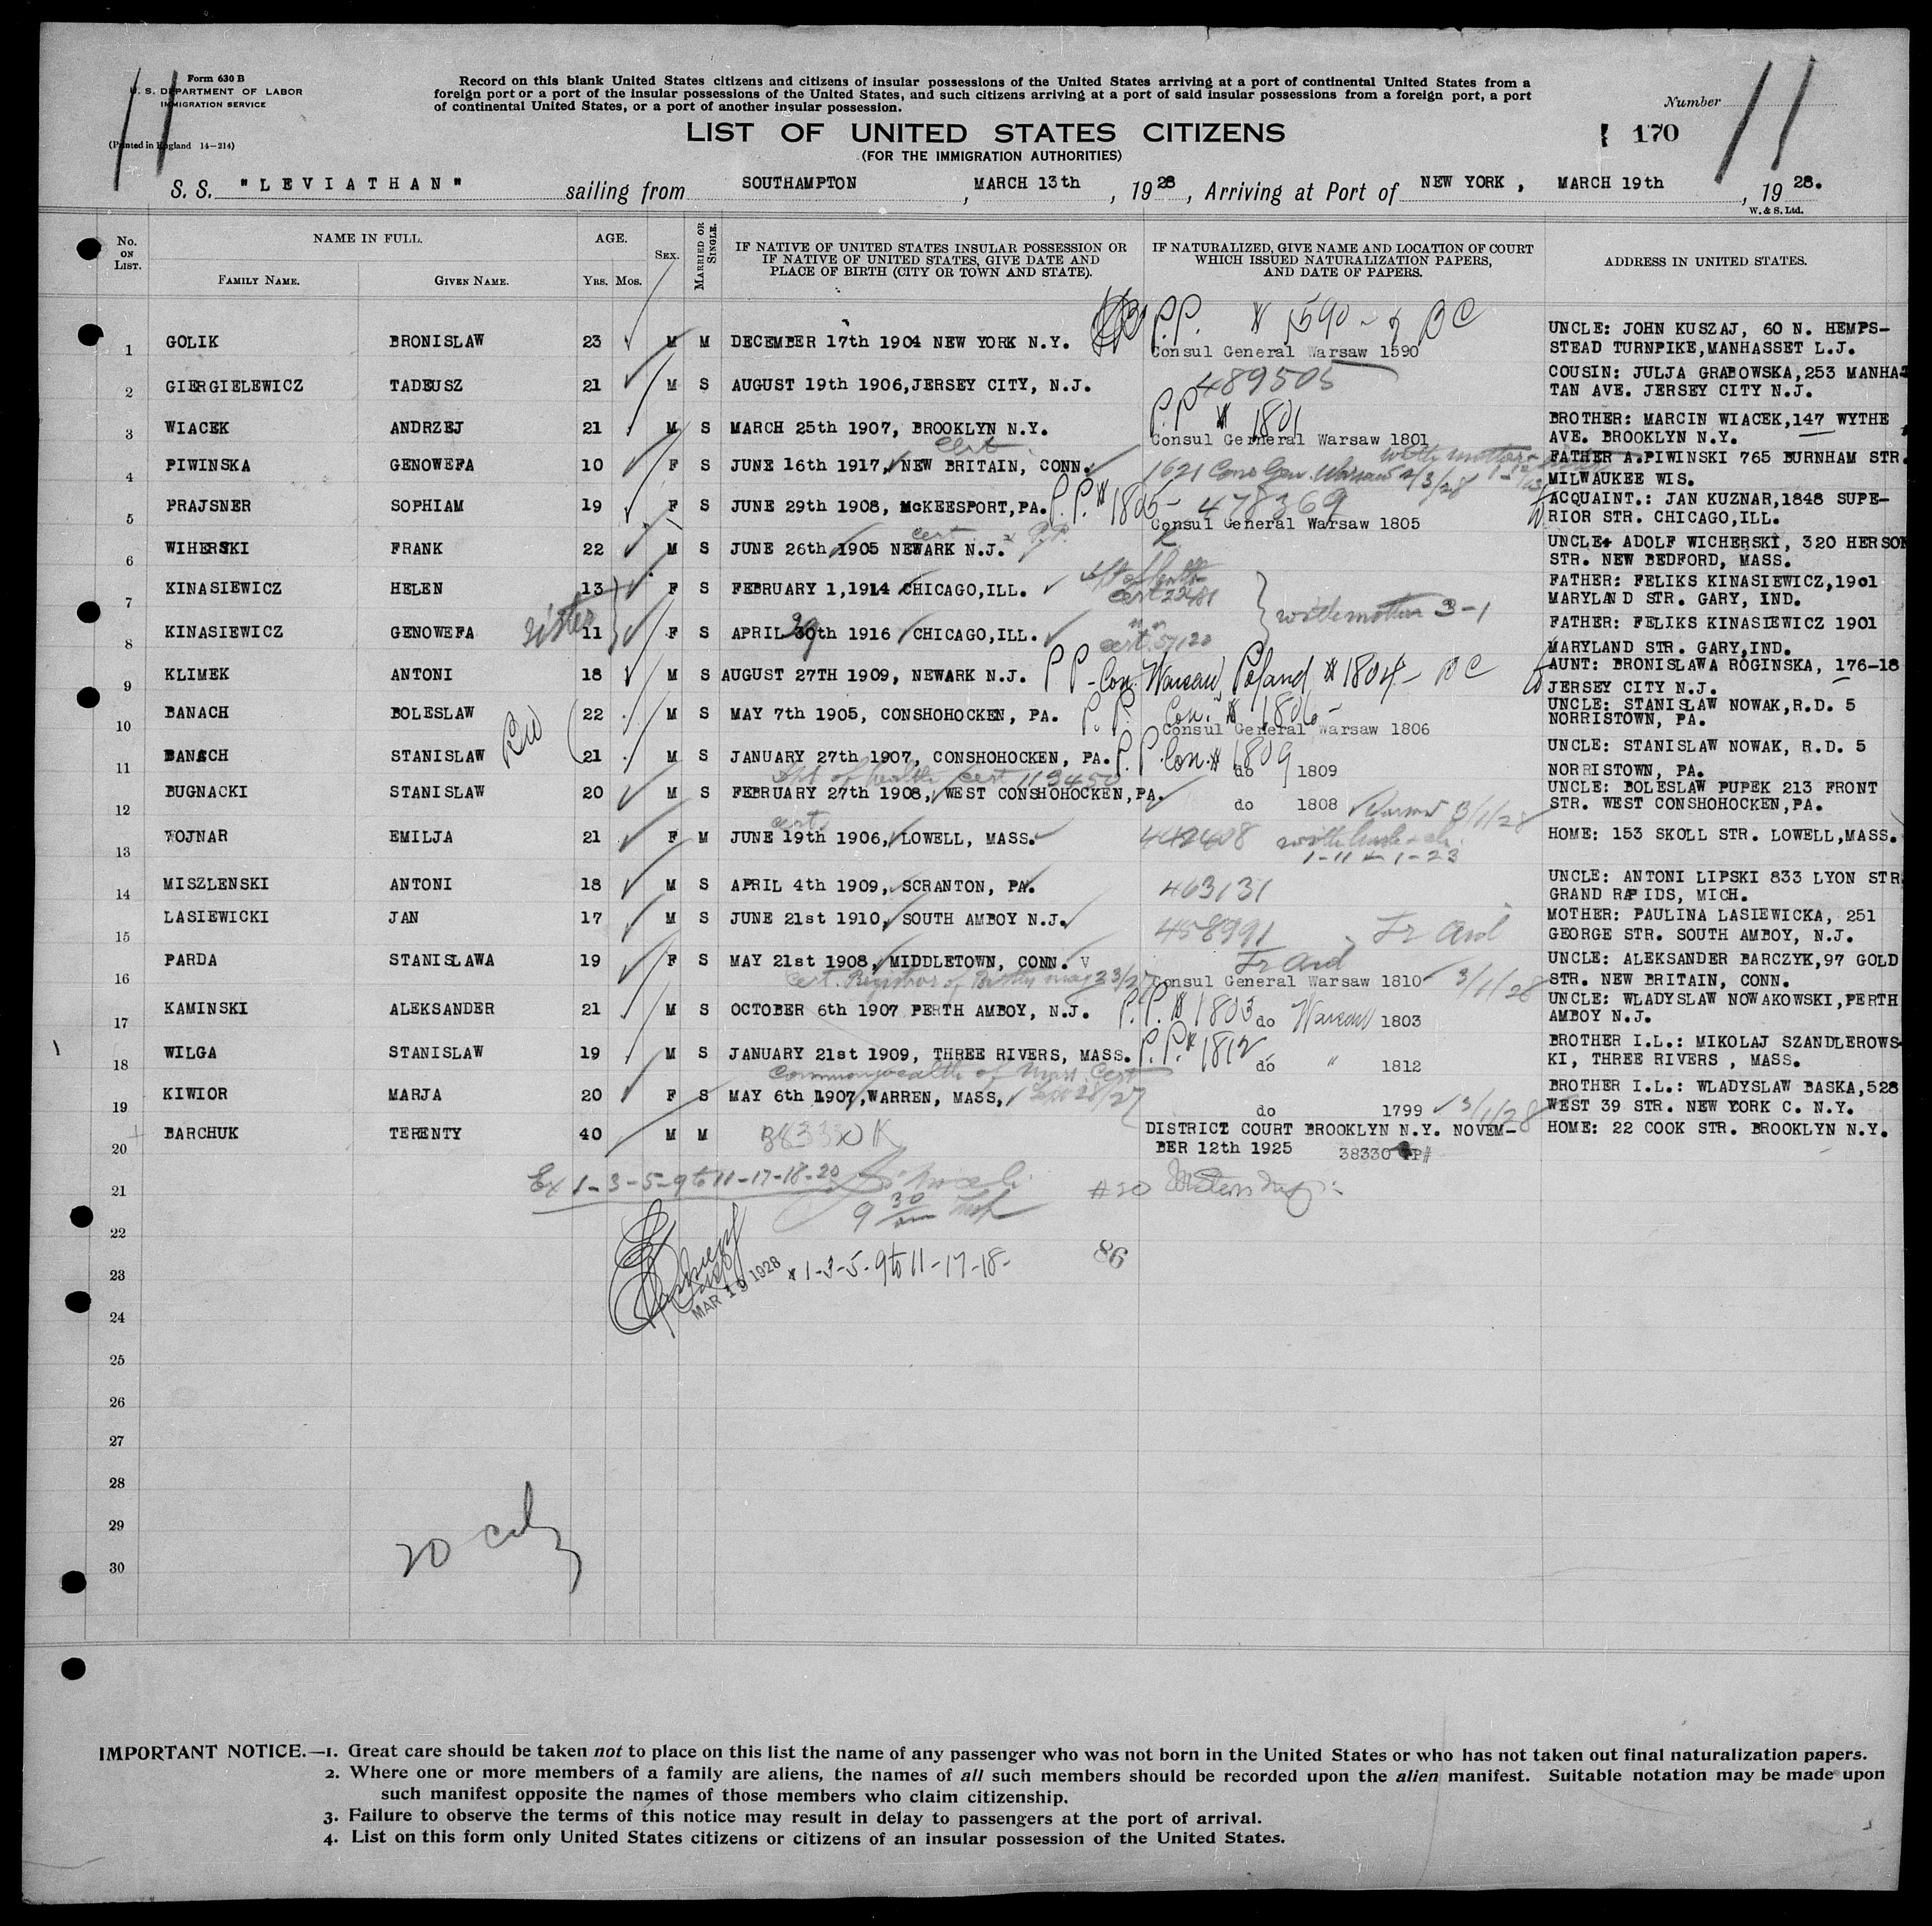 Form 630 B
U. S. DEPARTMENT OF LABOR
IMMIGRATION SERVICE
(Printed in England 14—214)
11
Record on this blank United States citizens and citizens of insular possessions of the United States arriving at a port of continental United States from a
foreign port or a port of the insular possessions of the United States, and such citizens arriving at a port of said insular possessions from a foreign port, a port
of continental United States, or a port of another insular possession.
Number 11
170
LIST OF UNITED STATES CITIZENS
(FOR THE IMMIGRATION AUTHORITIES)
S. S. "LEVIATHAN" sailing from SOUTHAMPTON, MARCH 13th, 1928, Arriving at Port of NEW YORK, MARCH 19th, 1928.
W. & S. Ltd.
No. ON LIST.
NAME IN FULL.
FAMILY NAME.
GIVEN NAME.
AGE.
YRS. MOS.
SEX.
MARRIED OR SINGLE.
IF NATIVE OF UNITED STATES INSULAR POSSESSION OR
IF NATIVE OF UNITED STATES, GIVE DATE AND
PLACE OF BIRTH (CITY OR TOWN AND STATE).
IF NATURALIZED, GIVE NAME AND LOCATION OF COURT
WHICH ISSUED NATURALIZATION PAPERS,
AND DATE OF PAPERS.
ADDRESS IN UNITED STATES.
P.P. # 1590 - & BC
1 GOLIK BRONISLAW 23 M M DECEMBER 17th 1904 NEW YORK N.Y. Consul General Warsaw 1590 UNCLE: JOHN KUSZAJ, 60 N. HEMPS-
STEAD TURNPIKE,MANHASSET L.J.
2 GIERGIELEWICZ TADEUSZ 21 M S AUGUST 19th 1906,JERSEY CITY, N.J. 489505 COUSIN: JULJA GRABOWSKA,253 MANHAT
TAN AVE. JERSEY CITY N.J.
P.P # 1801
3 WIACEK ANDRZEJ 21 M S MARCH 25th 1907, BROOKLYN N.Y. Consul General Warsaw 1801 BROTHER: MARCIN WIACEK,147 WYTHE
AVE. BROOKLYN N.Y.
Cert
4 PIWINSKA GENOWEFA 10 F S JUNE 16th 1917, NEW BRITAIN, CONN. 1621 Cons Gen. Warsaw 2/3/28 with mother FATHER A.PIWINSKI 765 BURNHAM STR.
MILWAUKEE WIS.
5 PRAJSNER SOPHIAM 19 F S JUNE 29th 1908, McKEESPORT,PA. P.P.# 1805- 478369 Consul General Warsaw 1805 ACQUAINT.: JAN KUZNAR,1848 SUPE-
RIOR STR. CHICAGO,ILL.
cert & P.P.
6 WIHERSKI FRANK 22 M S JUNE 26th 1905 NEWARK N.J. UNCLE+ ADOLF WICHERSKI, 320 HERSON
STR. NEW BEDFORD, MASS.
7 KINASIEWICZ HELEN 13 F S FEBRUARY 1,1914 CHICAGO,ILL. Cert 22481 FATHER: FELIKS KINASIEWICZ,1901
MARYLAND STR. GARY, IND.
sister
with mother 3-1
8 KINASIEWICZ GENOWEFA 11 F S APRIL 30th 1916 CHICAGO,ILL. cert. 57120 FATHER: FELIKS KINASIEWICZ 1901
MARYLAND STR. GARY,IND.
9 KLIMEK ANTONI 18 M S AUGUST 27TH 1909, NEWARK N.J. P P - Con. Warsaw, Poland # 1804 - BC AUNT: BRONISLAWA ROGINSKA, 176-18
JERSEY CITY N.J.
10 BANACH BOLESLAW 22 M S MAY 7th 1905, CONSHOHOCKEN, PA. P.P. Con. # 1806- Consul General Warsaw 1806 UNCLE: STANISLAW NOWAK,R.D. 5
NORRISTOWN, PA.
Bro
11 BANACH STANISLAW 21 M S JANUARY 27th 1907, CONSHOHOCKEN, PA. P.P. Con. # 1809 do 1809 UNCLE: STANISLAW NOWAK, R.D. 5
NORRISTOWN, PA.
Dpt of health cert 113450
12 BUGNACKI STANISLAW 20 M S FEBRUARY 27th 1908, WEST CONSHOHOCKEN,PA. do 1808 Warsaw 3/1/28 UNCLE: BOLESLAW PUPEK 213 FRONT
STR. WEST CONSHOHOCKEN,PA.
cert.
13 WOJNAR EMILJA 21 F M JUNE 19th 1906, LOWELL, MASS. 442408 with husb & ch. HOME: 153 SKOLL STR. LOWELL,MASS.
1-11 1-23
14 MISZLENSKI ANTONI 18 M S APRIL 4th 1909, SCRANTON, PA. 463131 UNCLE: ANTONI LIPSKI 833 LYON STR
GRAND RAPIDS, MICH.
15 LASIEWICKI JAN 17 M S JUNE 21st 1910, SOUTH AMBOY N.J. 458991 MOTHER: PAULINA LASIEWICKA, 251
GEORGE STR. SOUTH AMBOY, N.J.
16 PARDA STANISLAWA 19 F S MAY 21st 1908, MIDDLETOWN, CONN. Consul General Warsaw 1810 3/1/28 UNCLE: ALEKSANDER BARCZYK,97 GOLD
STR. NEW BRITAIN, CONN.
Cert. Registrar of Births May 23/27
17 KAMINSKI ALEKSANDER 21 M S OCTOBER 6th 1907 PERTH AMBOY, N.J. P.P. # 1803 do Warsaw 1803 UNCLE: WLADYSLAW NOWAKOWSKI,PERTH
AMBOY N.J.
18 WILGA STANISLAW 19 M S JANUARY 21st 1909, THREE RIVERS, MASS. P.P.# 1812 do " 1812 BROTHER I.L.: MIKOLAJ SZANDLEROWS-
KI, THREE RIVERS , MASS.
Commonwealth of Mass. Cert
19 KIWIOR MARJA 20 F S MAY 6th 1907,WARREN, MASS, do 1799 3/1/28 BROTHER I.L.: WLADYSLAW BASKA,528
WEST 39 STR. NEW YORK C. N.Y.
20 BARCHUK TERENTY 40 M M 38330 OK DISTRICT COURT BROOKLYN N.Y. NOVEM-
BER 12th 1925 38330 PP# HOME: 22 COOK STR. BROOKLYN N.Y.
21 Ex 1-3-5-9 to 11-17-18-20 #20
22 9 30 am
23 MAR 19 1928 # 1-3-5-9 to 11-17-18- 86
24
25
26
27
28
29
30
20
IMPORTANT NOTICE.—1. Great care should be taken not to place on this list the name of any passenger who was not born in the United States or who has not taken out final naturalization papers.
2. Where one or more members of a family are aliens, the names of all such members should be recorded upon the alien manifest. Suitable notation may be made upon
such manifest opposite the names of those members who claim citizenship.
3. Failure to observe the terms of this notice may result in delay to passengers at the port of arrival.
4. List on this form only United States citizens or citizens of an insular possession of the United States.